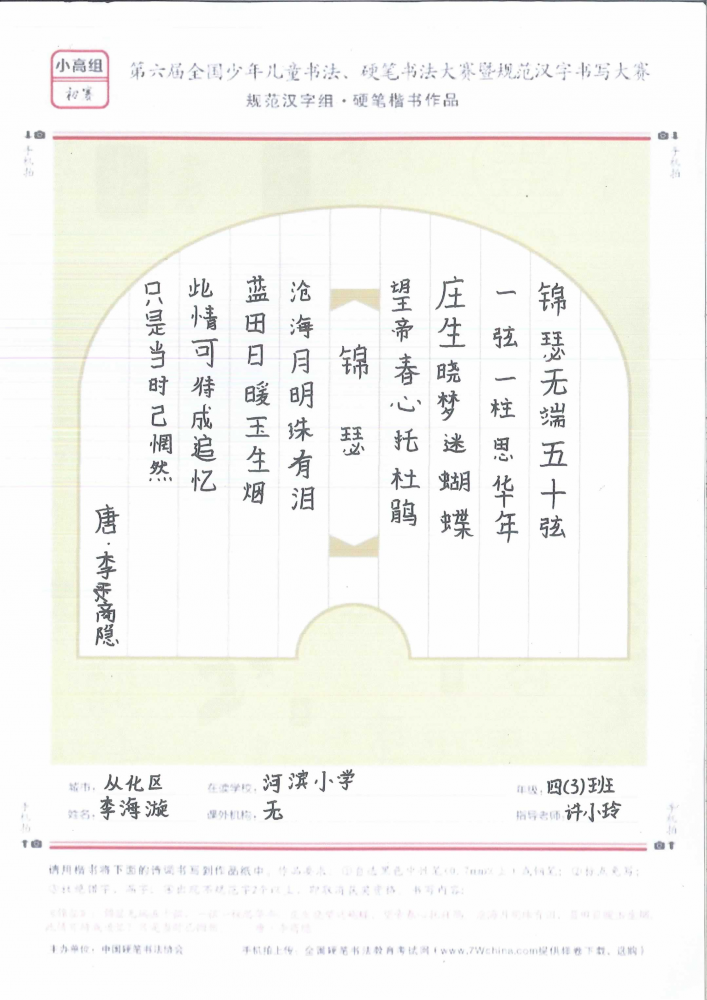 小高组
初赛
第六届全国少年儿童书法、硬笔书法大赛暨规范汉字书写大赛
规范汉字组·硬笔楷书作品
手机拍
手机拍
锦瑟无端五十弦
一弦一柱思华年
庄生晓梦迷蝴蝶
望帝春心托杜鹃
锦瑟
沧海月明珠有泪
蓝田日暖玉生烟
此情可待成追忆
只是当时已惘然
唐·李商隐
城市：从化区
在读学校：河滨小学
年级：四(3)班
姓名：李海漩
课外机构：无
指导老师：许小玲
手机拍
手机拍
请用楷书将下面的诗词书写到作品纸中。
主办单位：中国硬笔书法协会
手机拍上传：全国硬笔书法教育考试网（www.7Wchina.com提供样卷下载、选购）